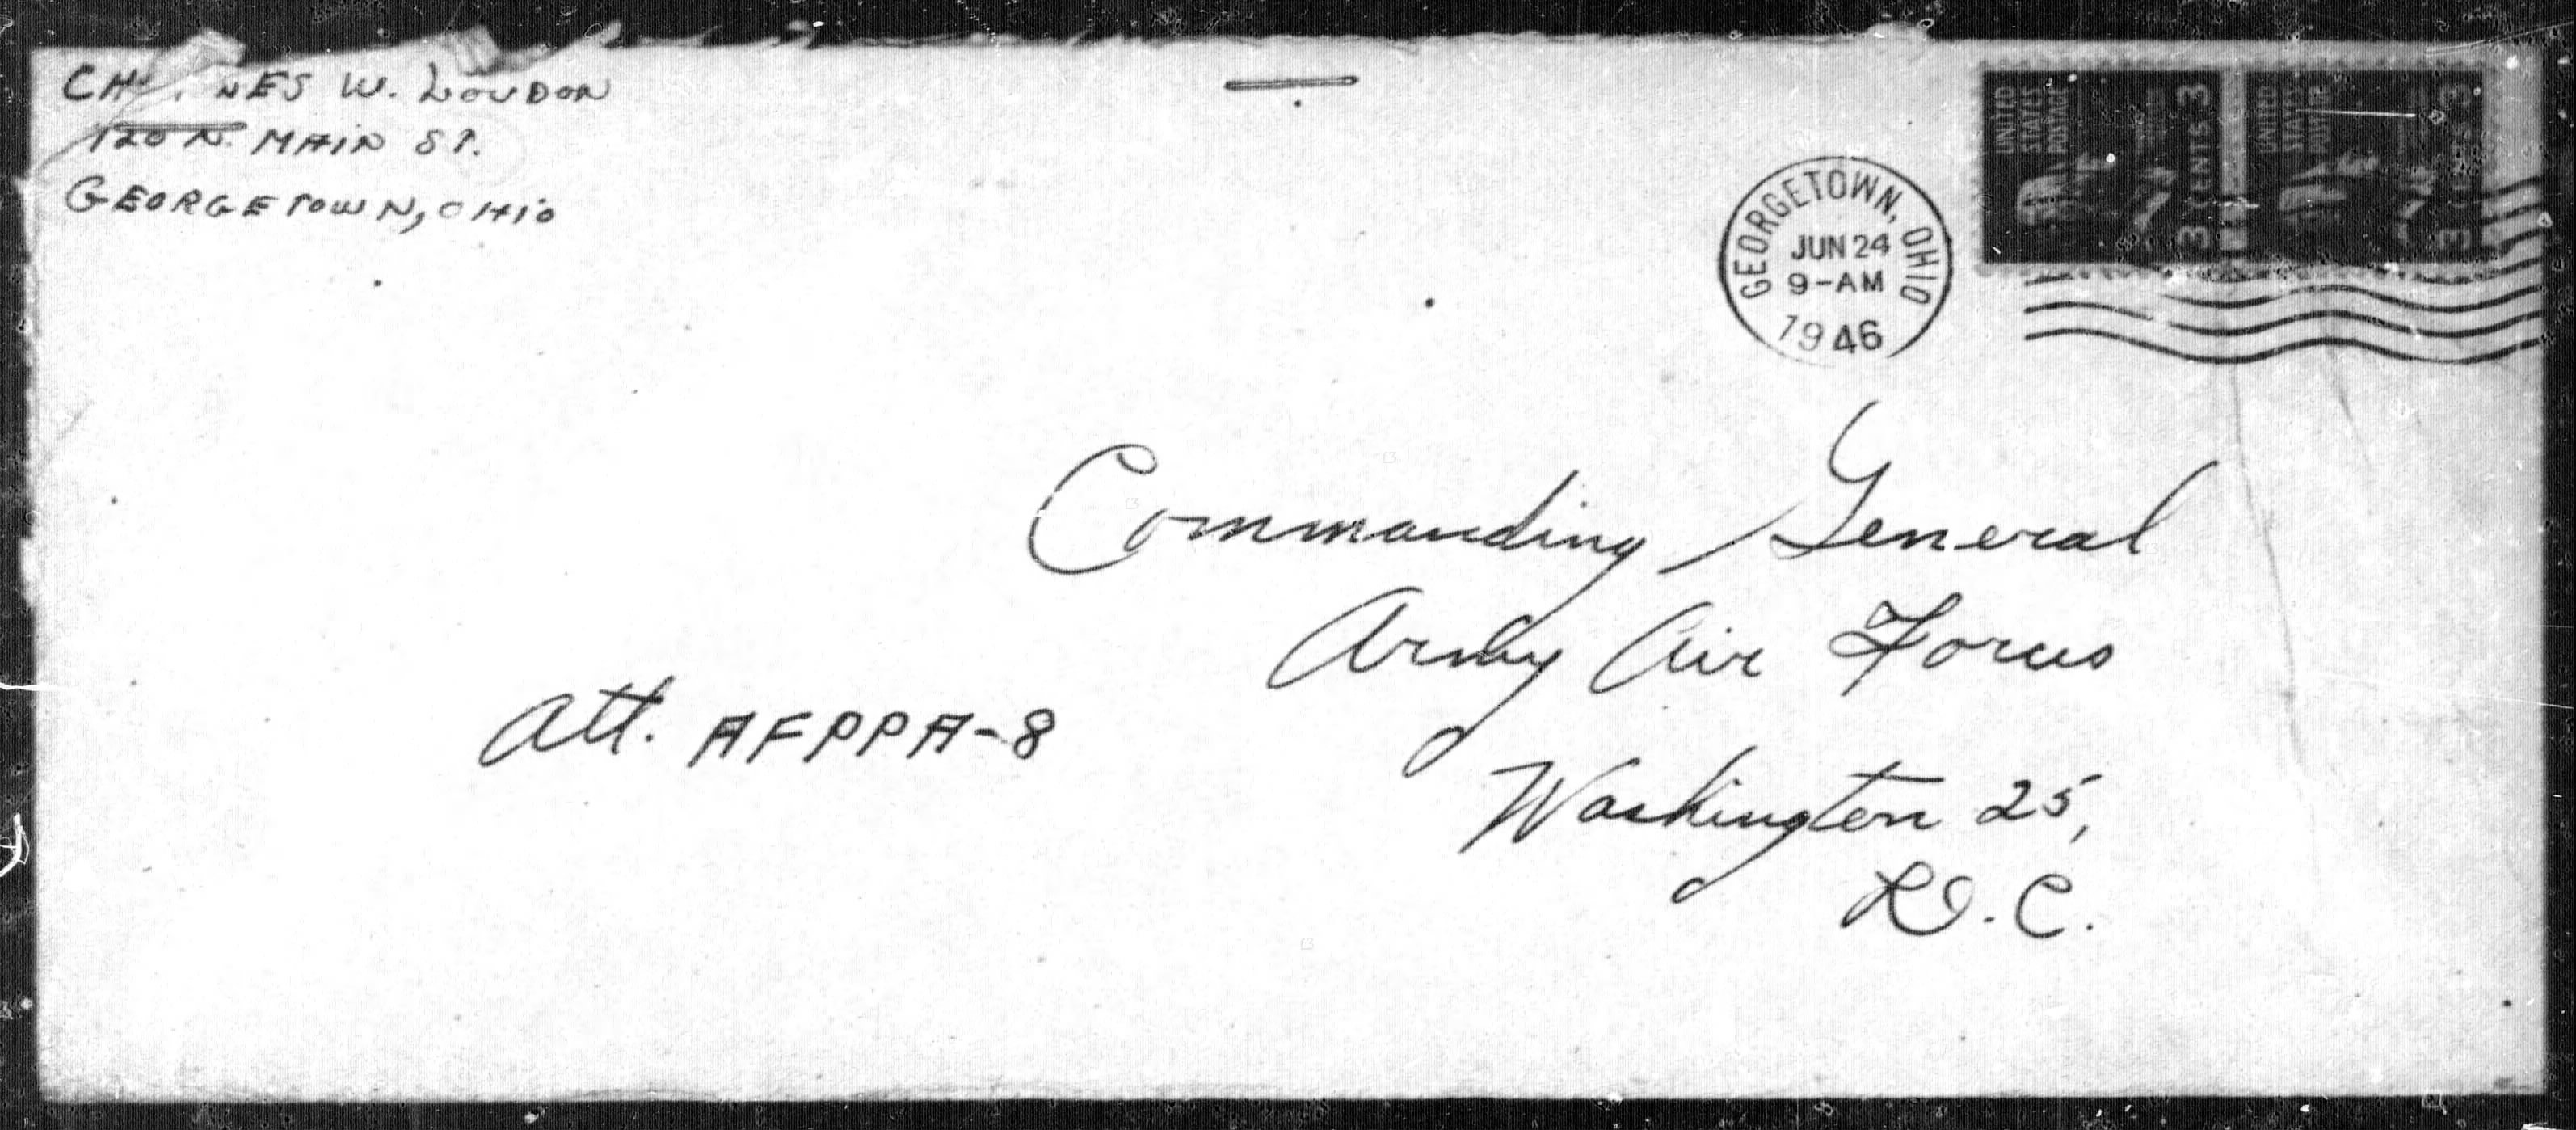 W. LOUDON
120 N. MAIN ST.
GEORGETOWN, OHIO
GEORGETOWN, OHIO
JUN 24
9-AM
1946
UNITED
STATES
POSTAGE
3 CENTS 3
UNITED
STATES
POSTAGE
3 CENTS 3
Commanding General
Army Air Forces
Att. AFPPA-8
Washington 25,
D.C.